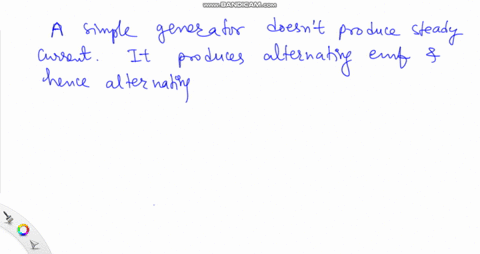 www.BANDICAM.com
A simple generator doesn't produce steady
current. It produces alternating emf &
hence alternating